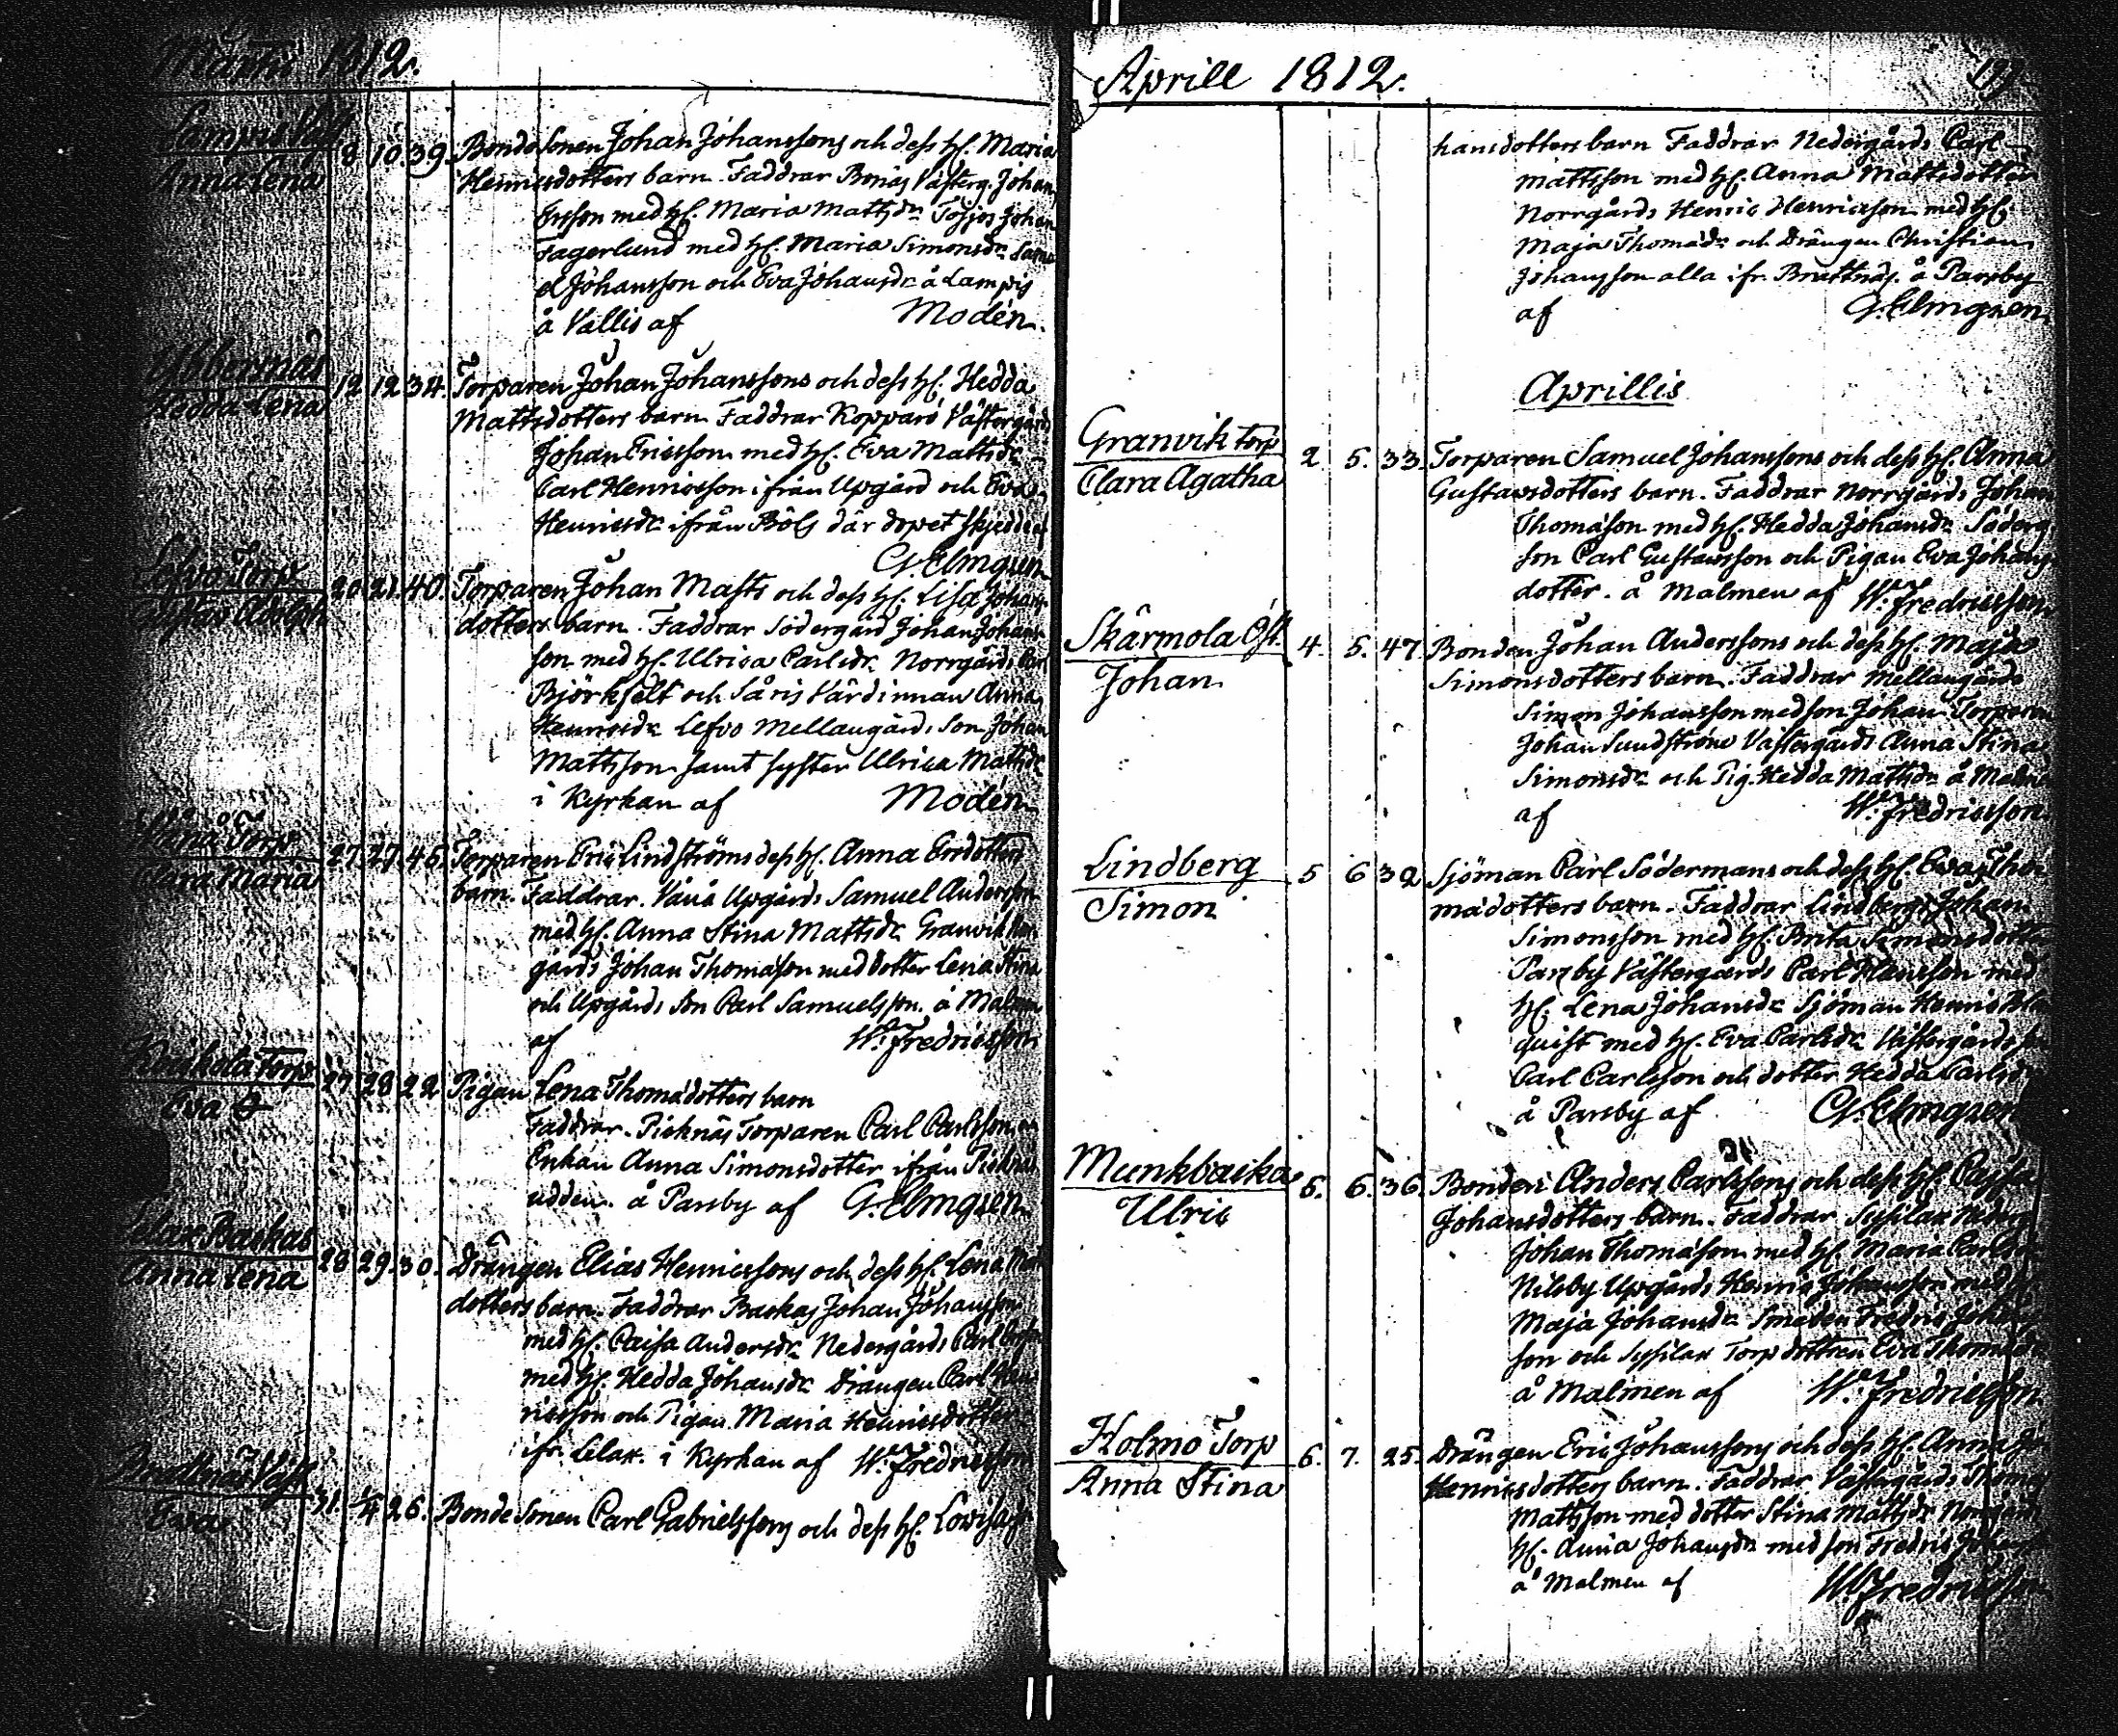 Martii 1812.
Lampis Väst
Anna Lena
8 10. 39. Bonde Sonen Johan Johanssons och dess H. Maria
Henricsdotters barn. Faddrar Bonas Västerg. Johan
Ersson med H. Maria Mattsdr Johan
Fagerlund med H. Maria Simonsdr Samu
el Johansson och Eva Johansdr å Lampis
å Vallis af Modén.
Ybbernäs
Hedda Lena
12 12 34. Torparen Johan Johanssons och dess H. Hedda
Mattsdotters barn Faddrar Kopparö Västergårds
Johan Ericsson med H. Eva Mattsdr
Carl Henricsson ifrån Upgård och Eva
Henricsdr ifrån Böls där dopet skjedde
G. Elmgren
Lefvo Torp
Gustav Adolph
20. 21. 40. Torparen Johan Matts och dess H. Lisa Johans
dotters barn. Faddrar Södergård Johan Johans
son med H. Ulrica Carlsdr. Norrgårds Carl
Björkfelt och Såris Värdinnan Anna
Henricsdr Lefvo Mellangårds Son Johan
Mattsson samt syster Ulrica Mattsdr
i Kyrkan af Modén
Vånå Torp
Clara Maria
27. 27. 46. Torparen Eric Lindströms dess H. Anna Ersdotters
barn. Faddrar. Vånå Upgårds Samuel Andersson
med H. Anna Stina Mattsdr Granvik Norr
gårds Johan Thomasson med dotter Lena Stina
och Upgårds Son Carl Samuelsson. å Malmen
af W. Fredricsson
Torp
Eva
27 28 22 Pigan Lena Thomadotters barn
Faddrar. Picknäs Torparen Carl Carlsson
Enkan Anna Simonsdotter ifrån Picknäs
udden. å Parsby af G. Elmgren
Lelax Backas
Anna Lena
28 29. 30. Drängen Elias Henricssons och dess H. Lena Matts
dotters barn. Faddrar Backas Johan Johansson
med H. Caisa Andersdr Nedergårds Carl
med H. Hedda Johansdr Drängen Carl Hen
ricsson och Pigan Maria Henricsdotter
ifr. Lelax. i Kyrkan af W. Fredricsson
Brattnäs Väst
Eva
31. 1/4 26. Bonde Sonen Carl Gabrielssons och dess H. Lovisa
Aprill 1812.
hansdotters barn Faddrar Nedergårds Carl
Mattsson med H. Anna Mattsdotter
Norrgårds Henric Henricsson med H.
Maja Thomadr och Drängen Christian
Johansson alla ifr. Brattnäs. å Parsby
af G. Elmgren
Aprillis
Granvik Torp
Clara Agatha
2 5. 33. Torparen Samuel Johanssons och dess H. Anna
Gustavsdotters barn. Faddrar Norrgårds Johan
Thomasson med H. Hedda Johansdr Söderg
son Carl Gustavsson och Pigan Eva Johans
dotter. å Malmen af W. Fredricsson
Skärmola Öst.
Johan
4. 5. 47 Bonden Johan Anderssons och dess H. Maja
Simonsdotters barn. Faddrar Mellangårds
Simon Johansson med son Johan Torparen
Johan Sundström Västergårds Anna Stina
Simonsdr och Pig. Hedda Mattsdr å
af W. Fredricsson
Lindberg
Simon
5 6 32 Sjöman Carl Södermans och dess H. Eva Tho
madotters barn. Faddrar Lindbergs Johan
Simonsson med H. Brita Simonsdotter
Parsby Västergårds Carl Hansson med
H. Lena Johansdr Sjöman Henric
quist med H. Eva Carlsdr Västergårds
Carl Carlsson och dotter Hedda Carlsdr
å Parsby af G. Elmgren
Munkbacka
Ulric
5. 6. 36. Bonden Anders Carlssons och dess H. Caysa
Johansdotters barn. Faddrar Sysilax
Johan Thomasson med H. Maria Carlsdr
Nilsby Upgårds Henric Johansson med H.
Maja Johansdr Smeden Fredric Johans
son och Sysilax Torp dottren Eva Thomadr
å Malmen af W. Fredricsson
Holmo Torp
Anna Stina
6. 7. 25. Drängen Eric Johanssons och dess H. Anna
Henricsdotters barn. Faddrar Västergårds Thomas
Mattsson med dotter Stina Mattsdr Norrgårds
H. Anna Johansdr med son Fredric
å Malmen af W. Fredricsson